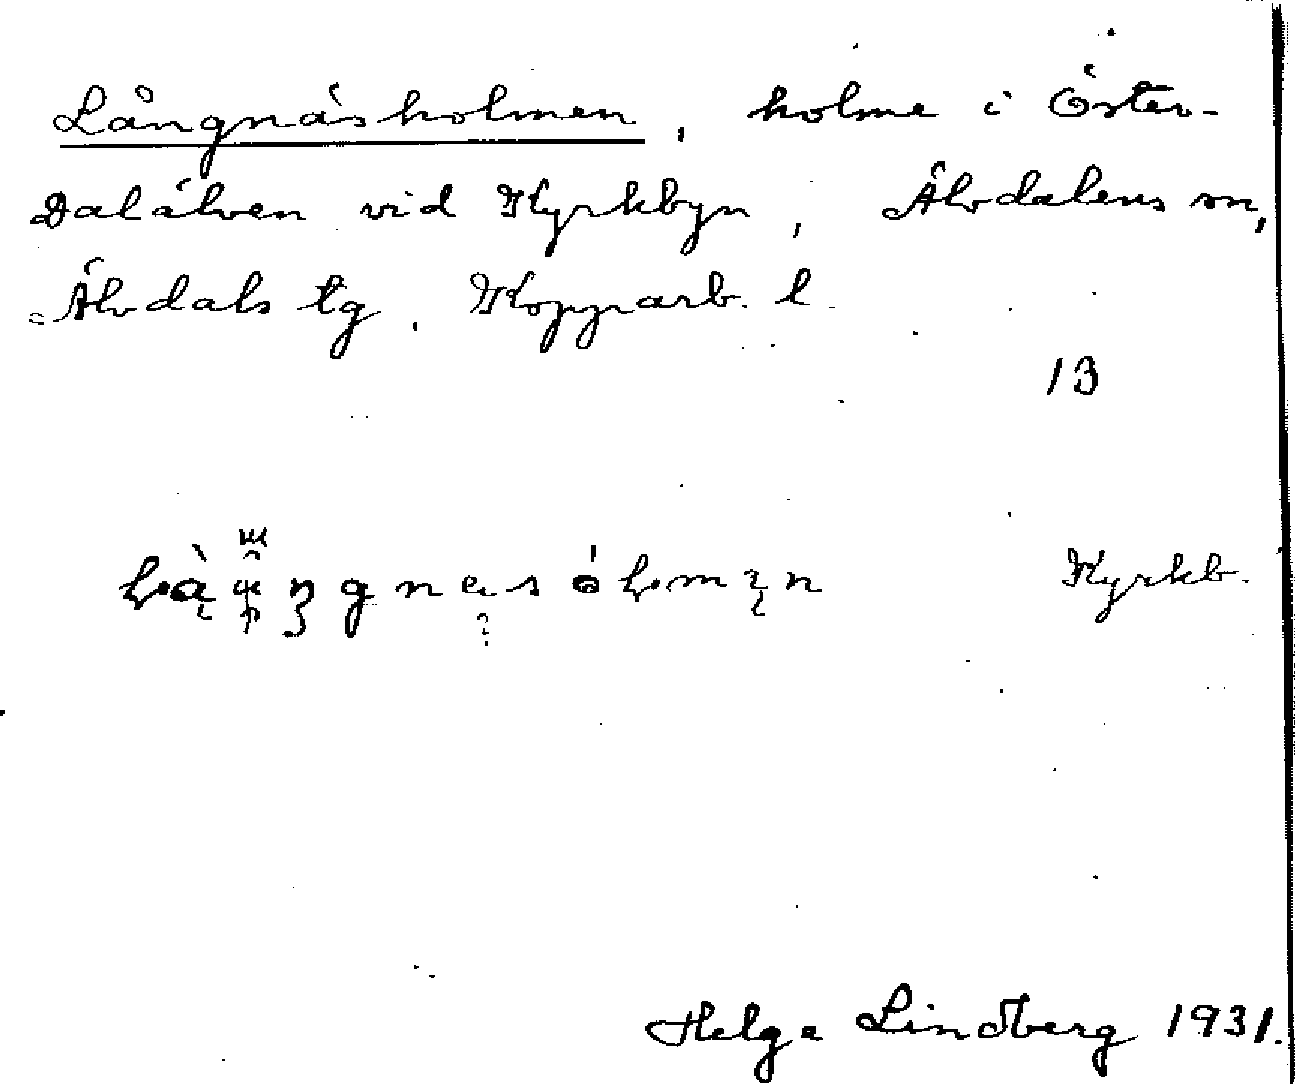 Långnäsholmen, holme i Öster-
Dalälven vid Kyrkbyn, Älvdalens sn,
Älvdals tg. Kopparb. l.
13
Kyrkb.
Helge Lindberg 1931.